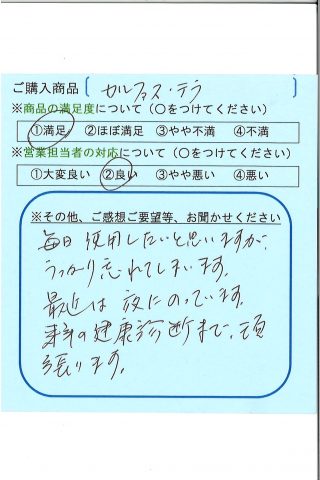 ご購入商品 〔 セルファス・テラ
※商品の満足度について（○をつけてください）
①満足 ②ほぼ満足 ③やや不満 ④不満
※営業担当者の対応について（○をつけてください）
①大変良い ②良い ③やや悪い ④悪い
※その他、ご感想ご要望等、お聞かせください
毎日使用したいと思いますが、
うっかり忘れてしまいます。
最近は 夜にのっています。
来年の健康診断まで、頑
張ります。